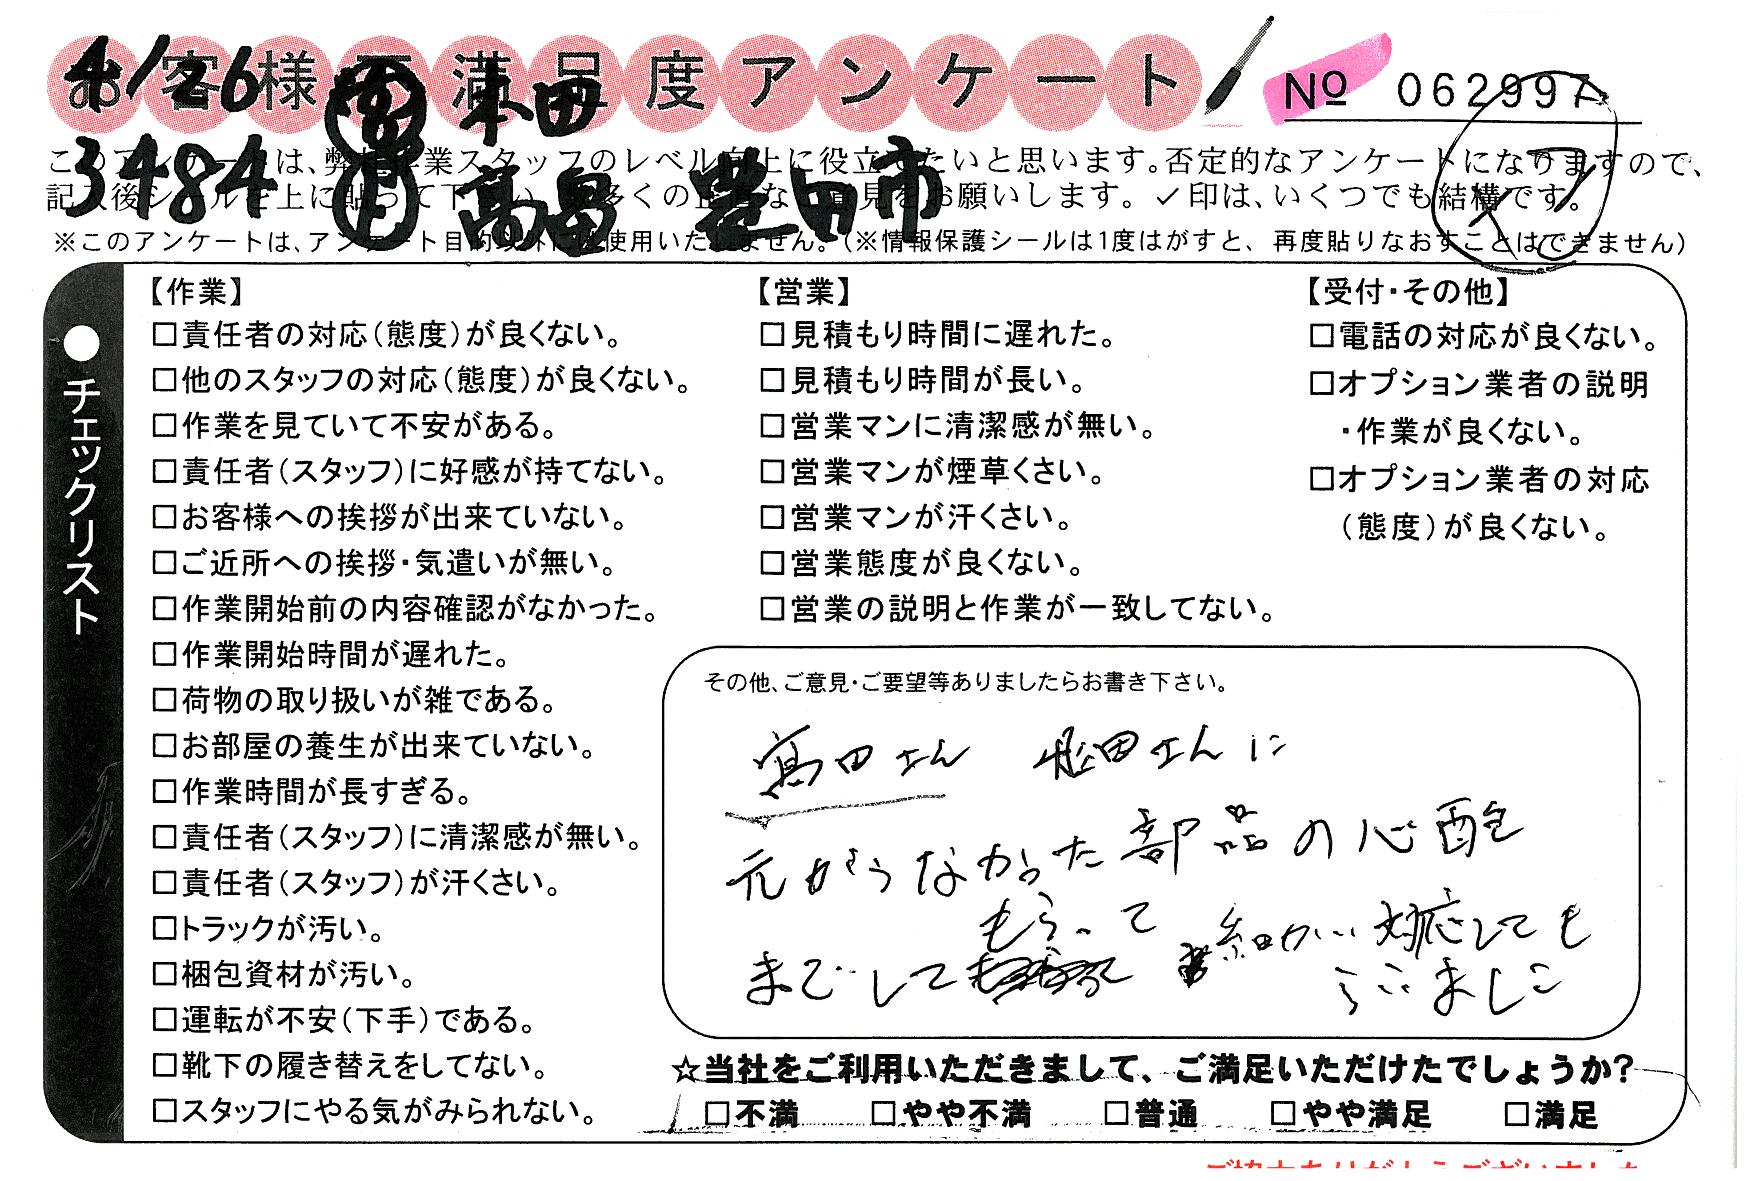 お客様不満足度アンケート
No 062997
4/26 本田
3484 高畠 豊田市
このアンケートは、弊社作業スタッフのレベル向上に役立てたいと思います。否定的なアンケートになりますので、
記入後シールを上に貼って下さい。数多くの正直なご意見をお願いします。✓印は、いくつでも結構です。
※このアンケートは、アンケート目的以外には使用いたしません。(※情報保護シールは1度はがすと、再度貼りなおすことはできません)
●チェックリスト
【作業】
□責任者の対応(態度)が良くない。
□他のスタッフの対応(態度)が良くない。
□作業を見ていて不安がある。
□責任者(スタッフ)に好感が持てない。
□お客様への挨拶が出来ていない。
□ご近所への挨拶・気遣いが無い。
□作業開始前の内容確認がなかった。
□作業開始時間が遅れた。
□荷物の取り扱いが雑である。
□お部屋の養生が出来ていない。
□作業時間が長すぎる。
□責任者(スタッフ)に清潔感が無い。
□責任者(スタッフ)が汗くさい。
□トラックが汚い。
□梱包資材が汚い。
□運転が不安(下手)である。
□靴下の履き替えをしてない。
□スタッフにやる気がみられない。
【営業】
□見積もり時間に遅れた。
□見積もり時間が長い。
□営業マンに清潔感が無い。
□営業マンが煙草くさい。
□営業マンが汗くさい。
□営業態度が良くない。
□営業の説明と作業が一致してない。
【受付・その他】
□電話の対応が良くない。
□オプション業者の説明
・作業が良くない。
□オプション業者の対応
(態度)が良くない。
その他、ご意見・ご要望等ありましたらお書き下さい。
髙田さん 松田さんに
元からなかった部品の心配
までしてもらって 細かい対応しても
らいました
☆当社をご利用いただきまして、ご満足いただけたでしょうか?
□不満 □やや不満 □普通 □やや満足 □満足
ご協力ありがとうございました